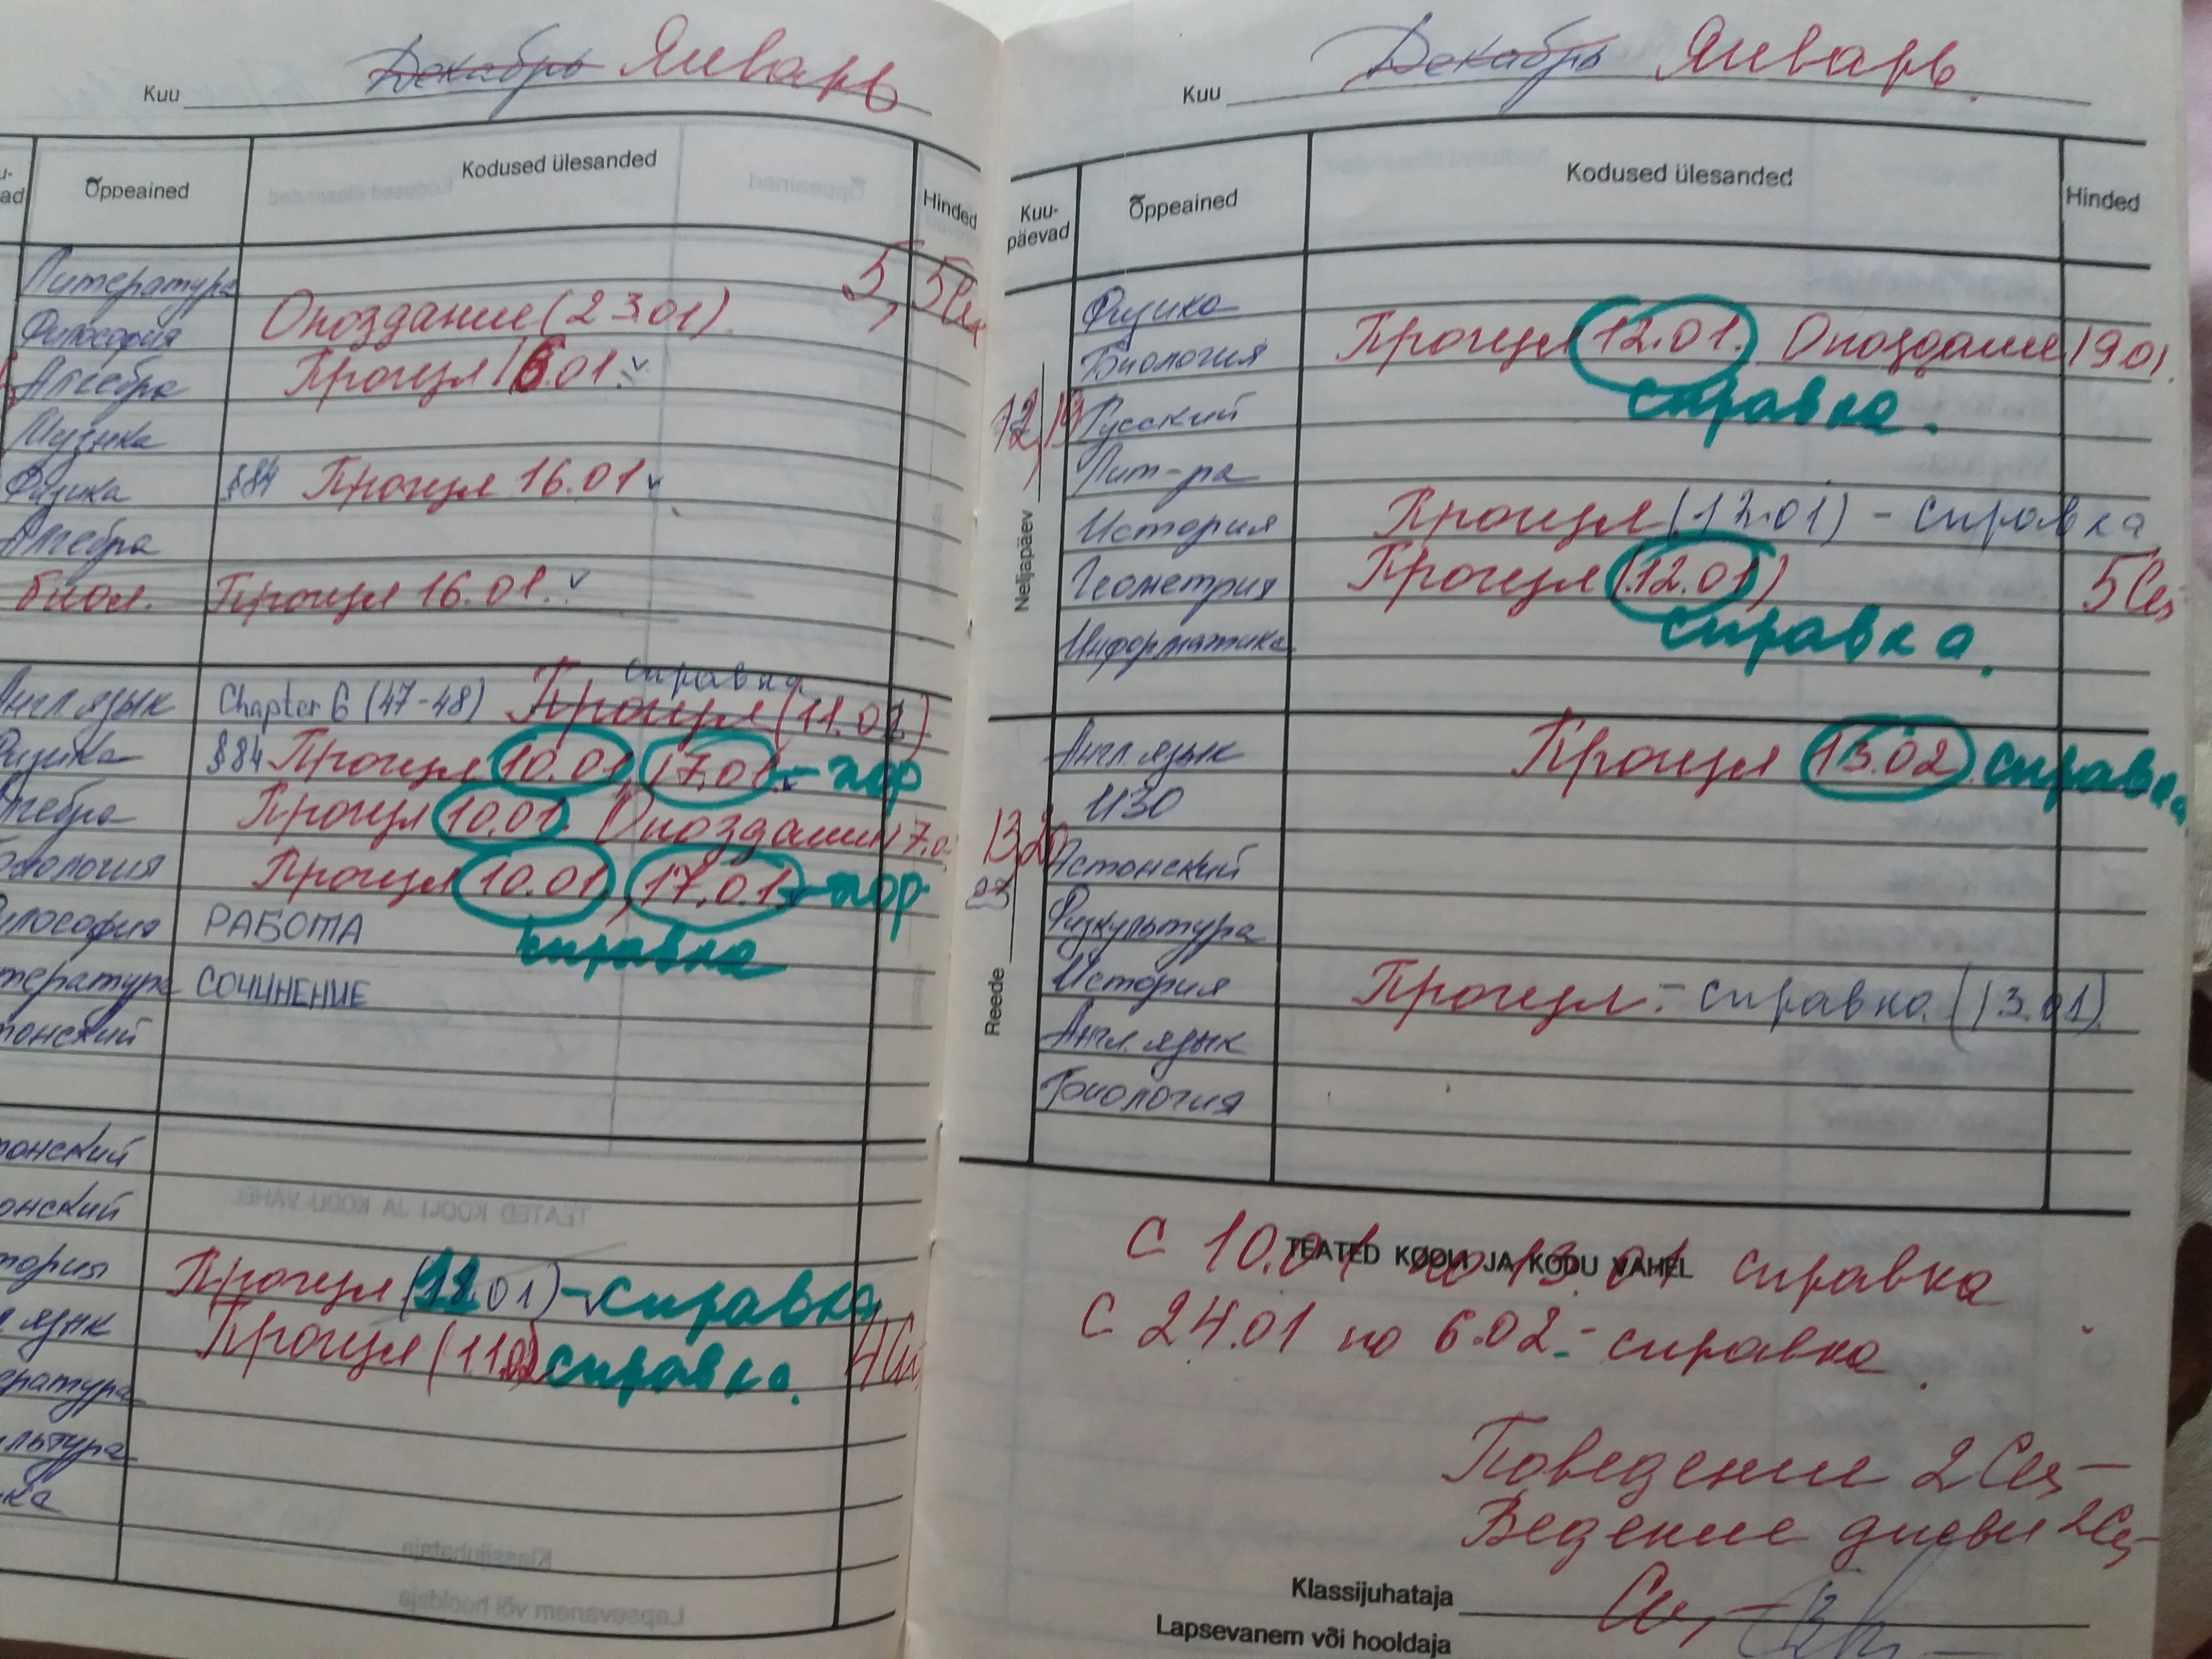 Kuu Декабрь Январь
Õppeained Kodused ülesanded Hinded
Литература 5,
Философия Опоздание (23.01).
Алгебра Прогул 16.01.
Музыка
Физика §84 Прогул 16.01
Алгебра
биол. Прогул 16.01.
справка
Англ. язык Chapter 6 (47-48) Прогул (11.01)
Физика §84 Прогул 10.01, 17.01
Алгебра Прогул 10.01. Опоздание 17.0
Биология Прогул 10.01, 17.01.
Философия РАБОТА справка
Литература СОЧИНЕНИЕ
тонский
тонский
онский
тория Прогул (11.01) - справка
язык Прогул (11.01) справка.
ература
льтура
ка
Kuu Декабрь Январь.
Kuu-päevad Õppeained Kodused ülesanded Hinded
Neljapäev 12, 19
Физика
Биология Прогул 12.01. Опоздание 19.01.
Русский справка.
Лит-ра
История Прогул (12.01) - справка
Геометрия Прогул (12.01) 5
Информатика справка.
Reede 13, 20
Англ. язык Прогул 13.02 справка
ИЗО
Эстонский
Физкультура
История Прогул. - справка. (13.01).
Англ. язык
Биология
TEATED KOOLI JA KODU VAHEL
С 10.01 по 13.01 справка
С 24.01 по 6.02. - справка.
Поведение 2
Ведение дневн 2
Klassijuhataja
Lapsevanem või hooldaja